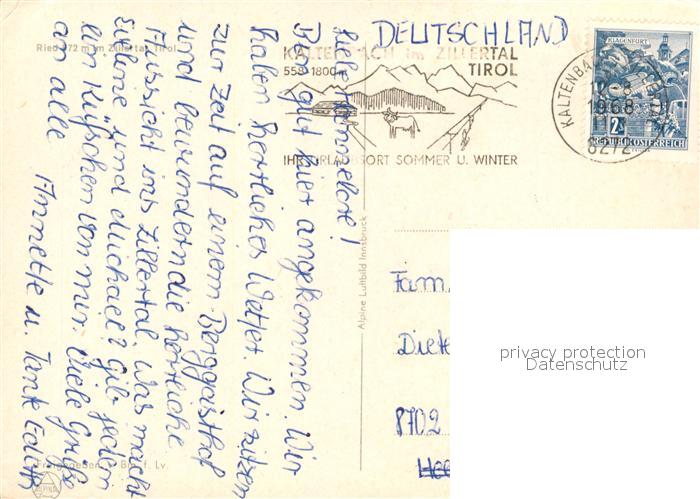 Ried 572 m im Zillertal, Tirol
DEUTSCHLAND
KALTENBACH im ZILLERTAL
558-1800m
TIROL
IHR URLAUBSORT SOMMER U. WINTER
KALTENBACH
1968
6272
KLAGENFURT
2S
REPUBLIK ÖSTERREICH
Liebe Hannelore!
Bin gut hier angekommen. Wir
haben herrliches Wetter. Wir sitzen
zur Zeit auf einem Berggasthof
und bewundern die herrliche
Aussicht ins Zillertal. Was macht
und Michael? Gib jeden
ein Küßchen von mir. Viele Grüße
an alle
Annette u. Tante Edith
Alpine Luftbild Innsbruck
Fam.
Diete
8702
Freigegeben v. Bm. f. Lv.
privacy protection
Datenschutz